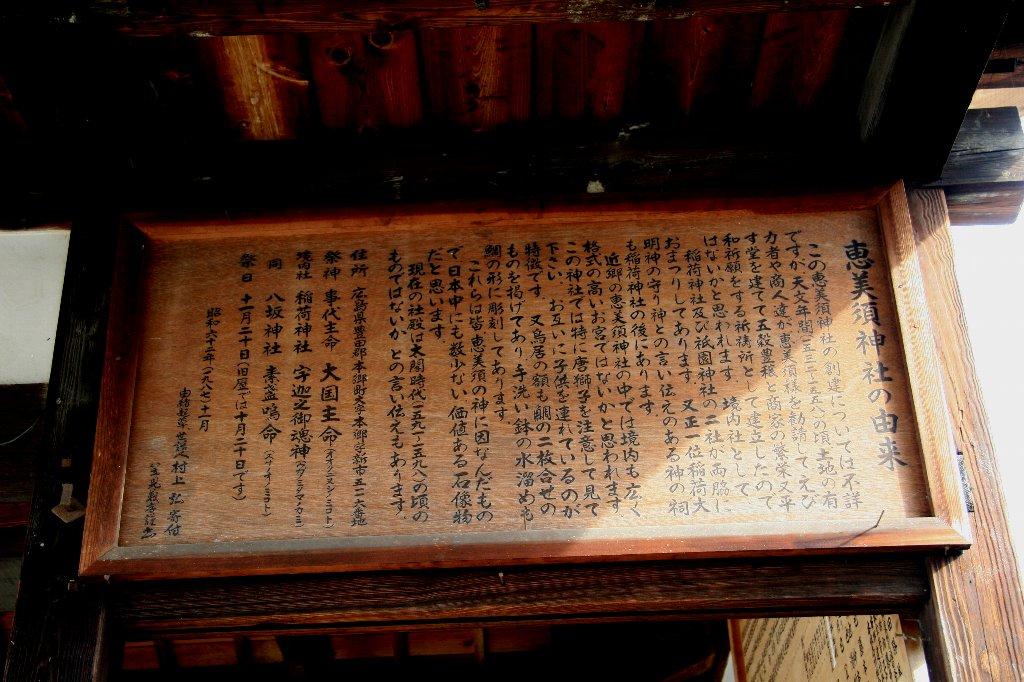 恵美須神社の由来
この恵美須神社の創建については不詳
ですが天文年間一五三二〜一五五八の頃土地の有
力者や商人達が恵美須様を勧請してえび
す堂を建てて五穀豊穣と商家の繁栄又平
和祈願をする祈祷所として建立したので
はないかと思われます。境内社として
稲荷神社及び祇園神社の二社が両脇に
おまつりしてあります。又正一位稲荷大
明神の守り神との言い伝えのある神の祠
も稲荷神社の後にあります。
近郷の恵美須神社の中では境内も広く
格式の高いお宮ではないかと思われます。
この神社では特に唐獅子を注意して見て
下さい。お互いに子供を連れているのが
特徴です。又鳥居の額も鯛の二枚合せの
ものを掲げてあり手洗い鉢の水溜めも
鯛の形に彫刻してあります。
これらは皆恵美須の神に因なんだもの
で日本中にも数少ない価値ある石像物
だと思います。
現在の社殿は太閤時代一五九一〜一五九八の頃の
ものではないかとの言い伝えもあります。
住所 広島県豊田郡本郷町大字本郷字新市五二一番地
祭神 事代主命 大国主命(オオクニヌシノミコト)
境内社 稲荷神社 宇迦之御魂神(ウカノミタマノカミ)
同 八坂神社 素盞嗚命(スサノオノミコト)
祭日 十一月二十日(旧暦では十月二十日です)
昭和六十二年(一九八七)十一月
村上 弘 寄付